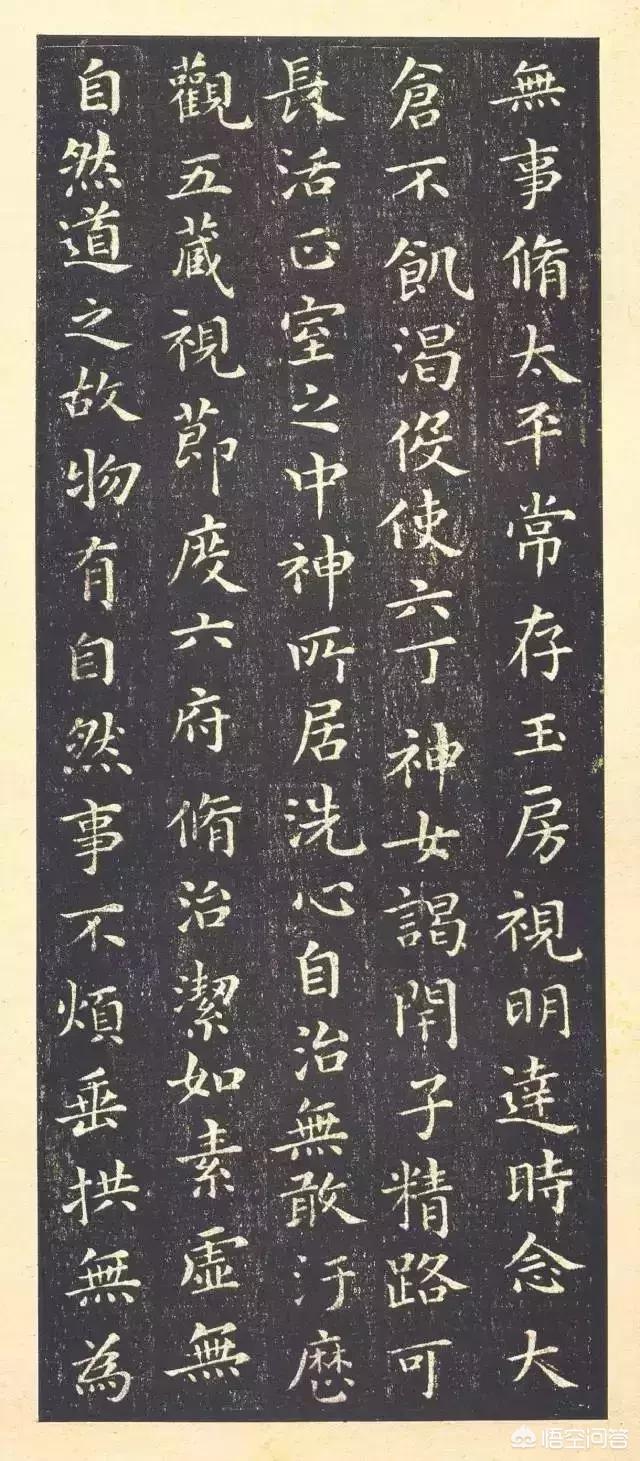 無事脩太平常存玉房視明達時念大
倉不飢渴役使六丁神女謁閇子精路可
長活正室之中神所居洗心自治無敢汙歷
觀五藏視節度六府脩治潔如素虛無
自然道之故物有自然事不煩垂拱無為
悟空问答